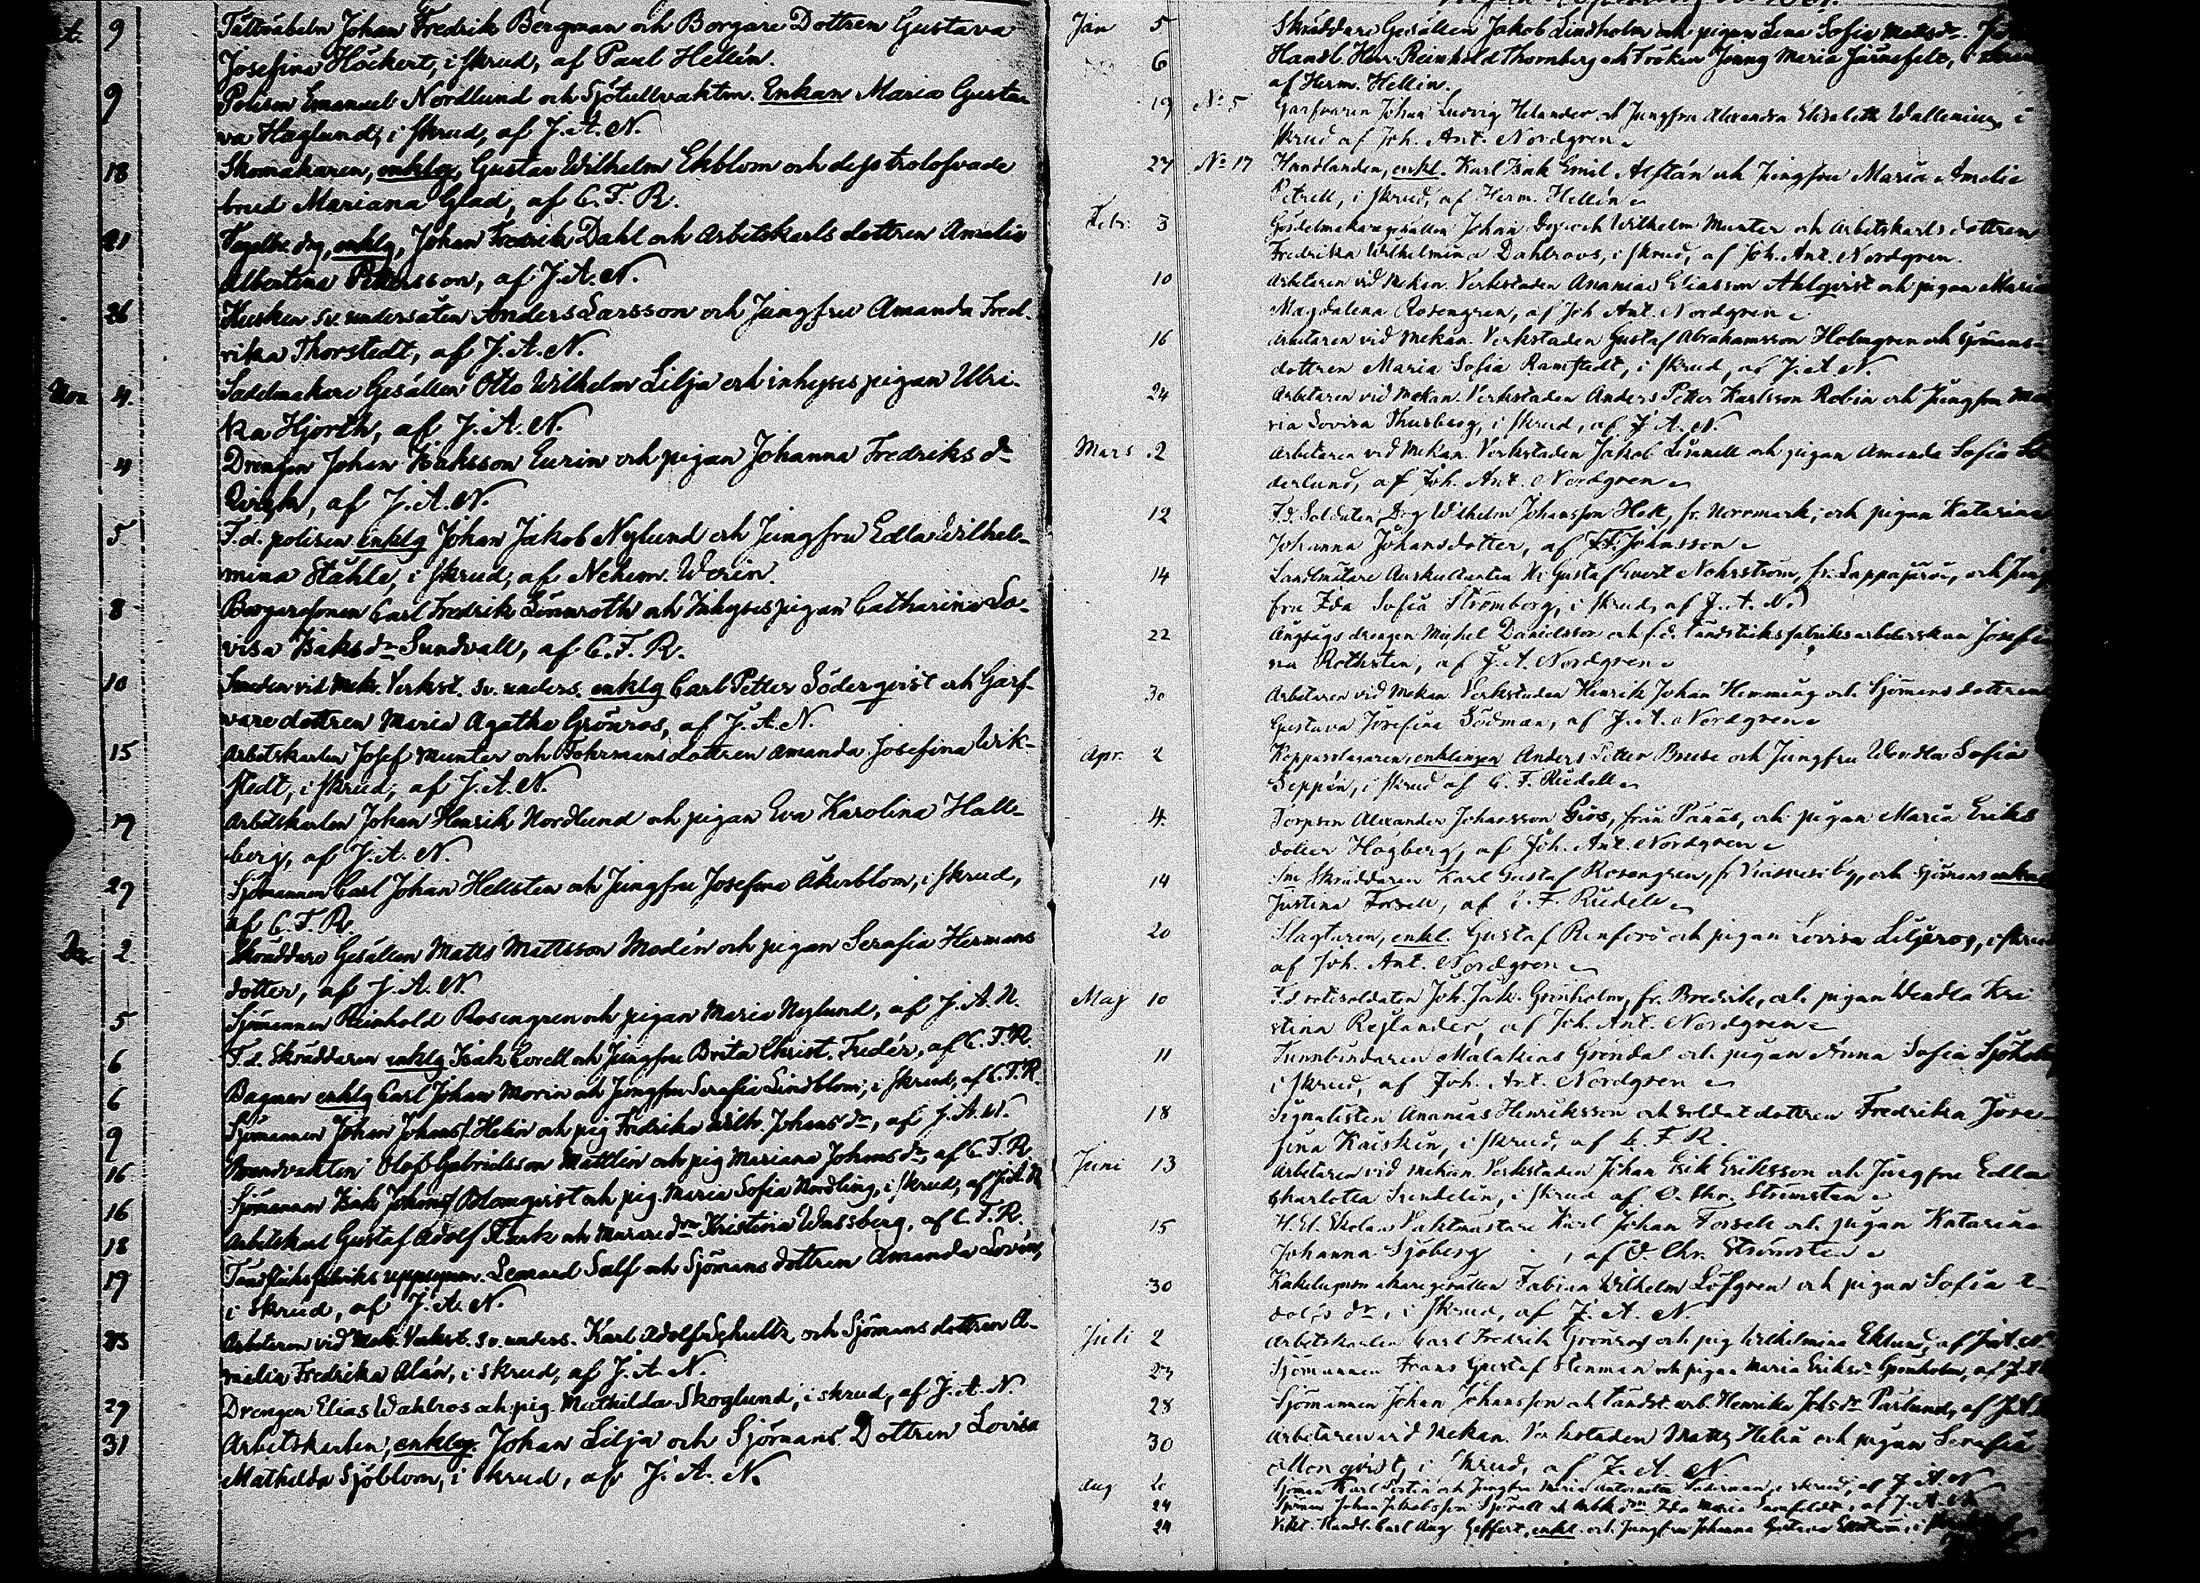 9 Johan Fredrik Bergman och Borgare Dottren Gustava
Josefina Höckert, i skrud, af Paul Hellén.
9 Polism Emanuel Nordlund och Sjötullvaktm. Enkan Maria Gusta-
va Haglund, i skrud, af J. A. N.
18 Skomakaren, enklg, Gustav Wilhelm Ekblom och dess trolofvade
brud Mariana Glad, af C. F. R.
21 enklg, Johan Fredrik Dahl och Arbetskarls dottren Amalia
Albertina Pettersson, af J. A. N.
26 Kusken Sv. undersåten Anders Larsson och Jungfru Amanda Fred-
rika Thorstedt, af J. A. N.
Nov 4. Sadelmakare Gesällen Otto Wilhelm Lilja och inhyses pigan Ulri-
ka Hjorth, af J. A. N.
4 Drengen Johan Isaksson Eurin och pigan Johanna Fredriks dr
af J. A. N.
5 F. d. polisen enklg Johan Jakob Nylund och Jungfru Edla Wilhel-
mina Ståhle, i skrud, af Nehem. Werin.
8 Borgaresonen Carl Fredrik Lönnroth och Inhyses pigan Catharina Lo-
visa Isaks dr Sundvall, af C. F. R.
10 Smeden vid Mek. Verkst. Sv. unders. enklg Carl Petter Söderqvist och Garf-
vare dottren Maria Agatha Grönros, af J. A. N.
15 Arbetskarlen Josef Munter och Fohrmans dottren Amanda Josefina Wik-
stedt, i skrud, af J. A. N.
19 Arbetskarlen Johan Henrik Nordlund och pigan Eva Karolina Hall-
berg, af J. A. N.
29 Sjömannen Carl Johan Hellsten och Jungfru Josefina Åkerblom, i skrud,
af C. F. R.
Dec. 2 Skräddare Gesällen Matts Mattsson Modén och pigan Serafia Hermans
dotter, af J. A. N.
5 Sjömannen Reinhold Rosengren och pigan Maria Nylund, af J. A. N.
6 F. d. Skräddaren enklg Isak Lovell och Jungfru Brita Christ. Fredér, af C. F. R.
6 Bagaren enklg Carl Johan Morin och Jungfru Serafia Lindblom, i skrud, af C. F. R.
9 Sjömannen Johan Johanss. Helin och pig Fredrika Wilh. Johans dr, af J. A. N.
16 Brandvakten Olof Gabrielsson Mattlin och pig Mariana Johans dr, af C. F. R.
16 Sjömannen Isak Johanss Blomqvist och pig. Maria Sofia Nordling, i skrud, af J. A. N.
18 Arbetskarl Gustaf Adolf Flink och Kristina Wassberg, af C. F. R.
19 Tändsticksfabriks uppsynm. Lenard Salf och Sjömans dottren Amanda Lovén,
i skrud, af J. A. N.
23 Arbetaren vid Mek. Verkst. Sv. unders. Karl Adolf Schultz och Sjömans dottren A-
malia Fredrika Alán, i skrud, af J. A. N.
29 Drengen Elias Wahlros och pig. Mathilda Skoglund, i skrud, af J. A. N.
31 Arbetskarlen, enklg. Johan Lilja och Sjömans Dottren Lovisa
Mathilda Sjöblom, i skrud, af J. A. N.
Jan 5 Skräddare Gesällen Jakob Lindholm och pigan Lena Sofia Matts dr.
6 Handl. Herr Reinhold Thornberg och Fröken Jenny Maria Järnefelt,
af Herm. Hellén.
19 No 5 Garfvaren Johan Ludvig Helander och Jungfru Alexandra Elisabeth Wallenius, i
skrud af Joh. Ant. Nordgren
27 No 17 Handlanden, enkl. Karl Isak Emil Alftán och Jungfru Maria Amelie
Petrell, i skrud, af Herm. Hellén
Febr. 3 Johan Wilhelm Munter och Arbetskarls dottren
Fredrika Wilhelmina Dahlroos, i skrud, af Joh. Ant. Nordgren.
10 Arbetaren vid Mekan. Verkstaden Ananias Eliasson Ahlqvist och pigan Maria
Magdalena Rosengren, af Joh. Ant. Nordgren
16 Arbetaren vid Mekan. Verkstaden Gustaf Abrahamsson Holmgren och Sjömans-
dottren Maria Sofia Ramstedt, i skrud, af J. A. N.
24 Arbetaren vid Mekan. Verkstaden Anders Petter Karlsson Robin och Jungfru Ma
ria Lovisa Thusberg, i skrud, af J. A. N.
Mars 2 Arbetaren vid Mekan. Verkstaden Jakob och pigan Amanda Sofia
derlund, af Joh. Ant. Nordgren
12 F. d. Soldaten, Drg Wilhelm Johansson fr. Norrmark, och pigan Katarina
Johanna Johansdotter, af
14 Landtmätare Auskultanten Gustaf Evert Nohrström, fr. Lappajärvi, och Jung
fru Ida Sofia Strömberg, i skrud, af J. A. N.
22 Ångsågs drengen Danielsson och f. d. tändsticksfabriks arbeterskan Josefi
na Rothsten, af J. A. Nordgren
30 Arbetaren vid Mekan. Verkstaden Henrik Johan Hemming och Sjömans dottren
Gustava Josefina Södman, af J. A. Nordgren
Apr. 2 Kopparslagaren, enklingen Anders Petter Bruse och Jungfru Wendla Sofia
Seppén, i skrud af C. F. Rüdell
4. Torpson Alexander Johansson från Påmås, och pigan Maria Eriks
dotter Högberg, af Joh. Ant. Nordgren
14 Skräddaren Karl Gustaf Rosengren, och Sjömans
Justina Forsell, af C. F. Rüdell
20 Slagtaren, enkl. Gustaf Renfors och pigan Lovisa Liljeros, i skrud
af Joh. Ant. Nordgren
Maj 10 F. d. rotesoldaten Joh. Jak. Grönholm, fr. Bredvik, och pigan Wendla Kri
stina Rejlander, af Joh. Ant. Nordgren
11 Tunnbindaren Malakias Gröndal och pigan Anna Sofia
i skrud, af Joh. Ant. Nordgren
18 Signalisten Ananias Henriksson och soldat dottren Fredrika Jose-
fina Kaiskin, i skrud, af C. F. R.
Juni 13 Arbetaren vid Mekan. Verkstaden Johan Erik Eriksson och Jungfru Edla
Charlotta Sundelin, i skrud af O. Chr. Strömsten
15 Vaktmästare Karl Johan Forsell och pigan Katarina
Johanna Sjöberg, af O. Chr. Strömsten
30 Kakelugnsmakaregesällen Fabian Wilhelm Löfgren och pigan Sofia
dr, i skrud, af J. A. N.
Juli 2 Arbetskarlen Carl Fredrik Grönros och pig Wilhelmina Eklund, af J. A. N.
23 Sjömannen Frans Gustaf Stenman och pigan Maria Eriks dr Grönholm, af
28 Sjömannen Johan Johansson och tändst. arb. Henrika Johs dr Pärlund, af
30 Arbetaren vid Mekan. Verkstaden Matts Helin och pigan Serafia
i skrud, af J. A. N.
Aug 20 Sjöman Karl och Jungfru Maria Söderman, i skrud, af J. A. N.
24 Sjöman Johan Jakobsson och Ida Maria af J. A. N.
24 Vikt. Handl. Carl Aug. Geffert, enkl. och Jungfru Johanna Gustava